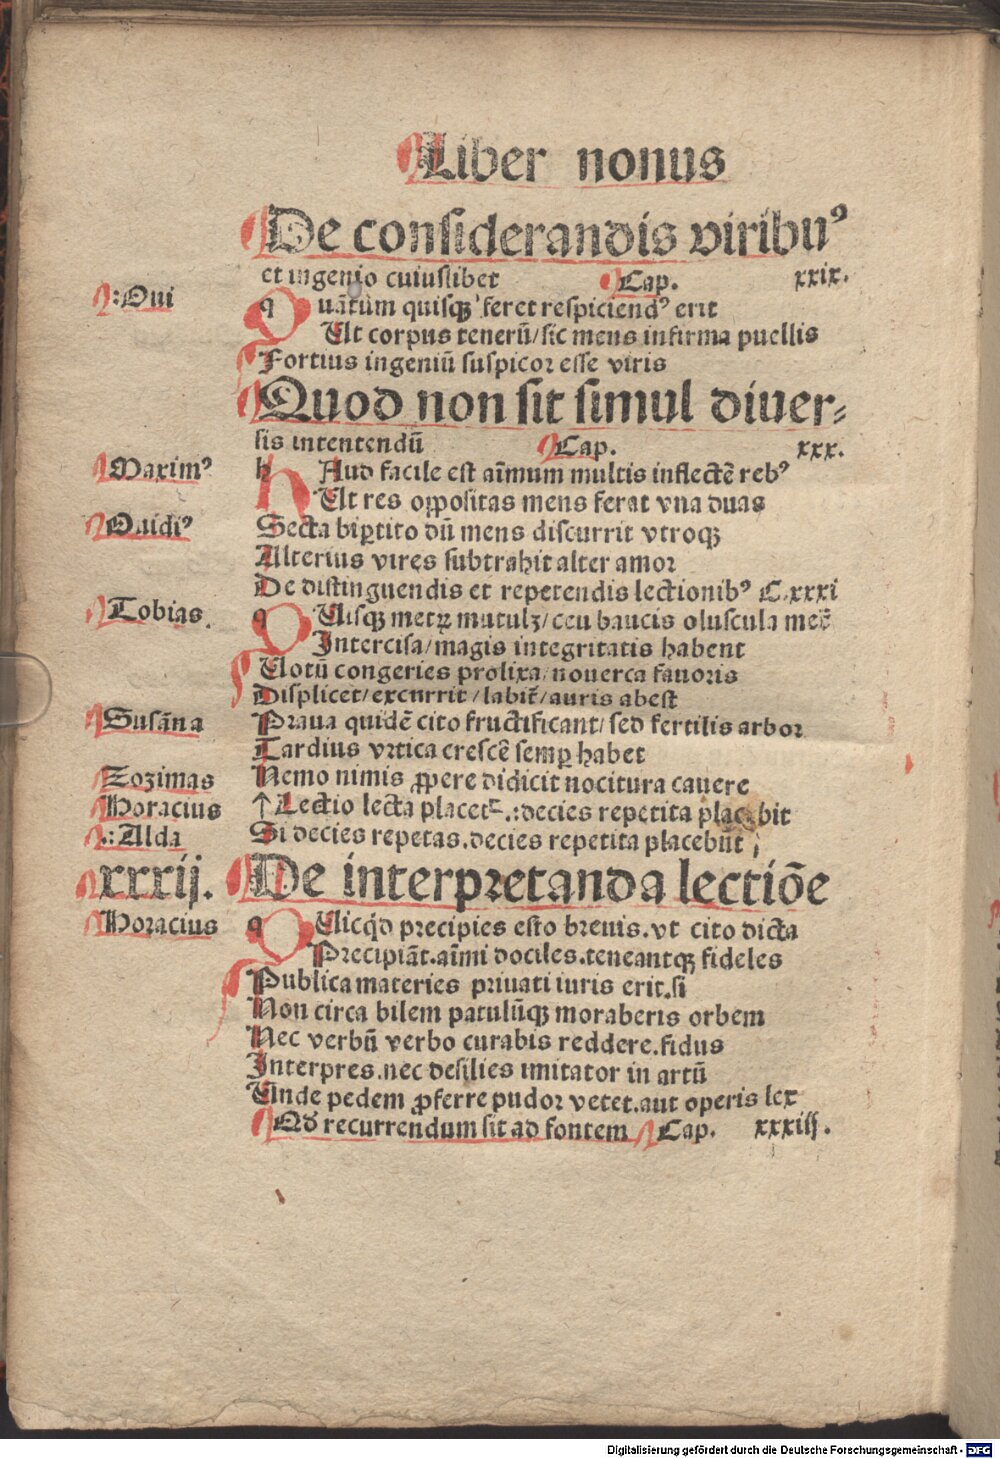 Liber nonus
De considerandis viribuꝰ
et ingenio cuiuslibet Cap. xxix.
:Oui
q uãtum quisqꝫ feret respiciendꝰ erit
Ut corpus tenerũ/sic mens infirma puellis
Fortius ingeniũ suspicor esse viris
Quod non sit simul diuer⸗
sis intentendũ Cap. xxx.
Maximꝰ
h Aud facile est aĩmum multis inflectẽ rebꝰ
Ut res oppositas mens ferat vna duas
Ouidiꝰ
Secta bipartito dũ mens discurrit vtroqꝫ
Alterius vires subtrahit alter amor
De distinguendis et repetendis lectionibꝰ C.xxxi
Tobias.
q Uisqꝫ metꝝ mutulꝫ/ceu baucis oluscula mec̃
Intercisa/magis integritatis habent
Uotũ congeries prolixa/nouerca fauoris
Displicet/excurrit/labit᷑/auris abest
Susãna
Praua quidẽ cito fructificant/sed fertilis arbor
Tardius vrtica crescẽ semꝑ habet
Zozimas
Nemo nimis ꝓpere didicit nocitura cauere
Horacius
↑Lectio lecta placet .:decies repetita placebit
.:Alda
Si decies repetas.decies repetita placebũt
xxxij. De interpretanda lectiõe
Horacius
q Uicq̇d precipies esto breuis.vt cito dicta
Precipiãt.aĩmi dociles.teneantqꝫ fideles
Publica materies priuati iuris erit.si
Non circa bilem patulũqꝫ moraberis orbem
Nec verbũ verbo curabis reddere.fidus
Interpres.nec desilies imitator in artũ
Unde pedem ꝓferre pudor vetet.aut operis lex
Qd recurrendum sit ad fontem Cap. xxxiij.
Digitalisierung gefördert durch die Deutsche Forschungsgemeinschaft - DFG